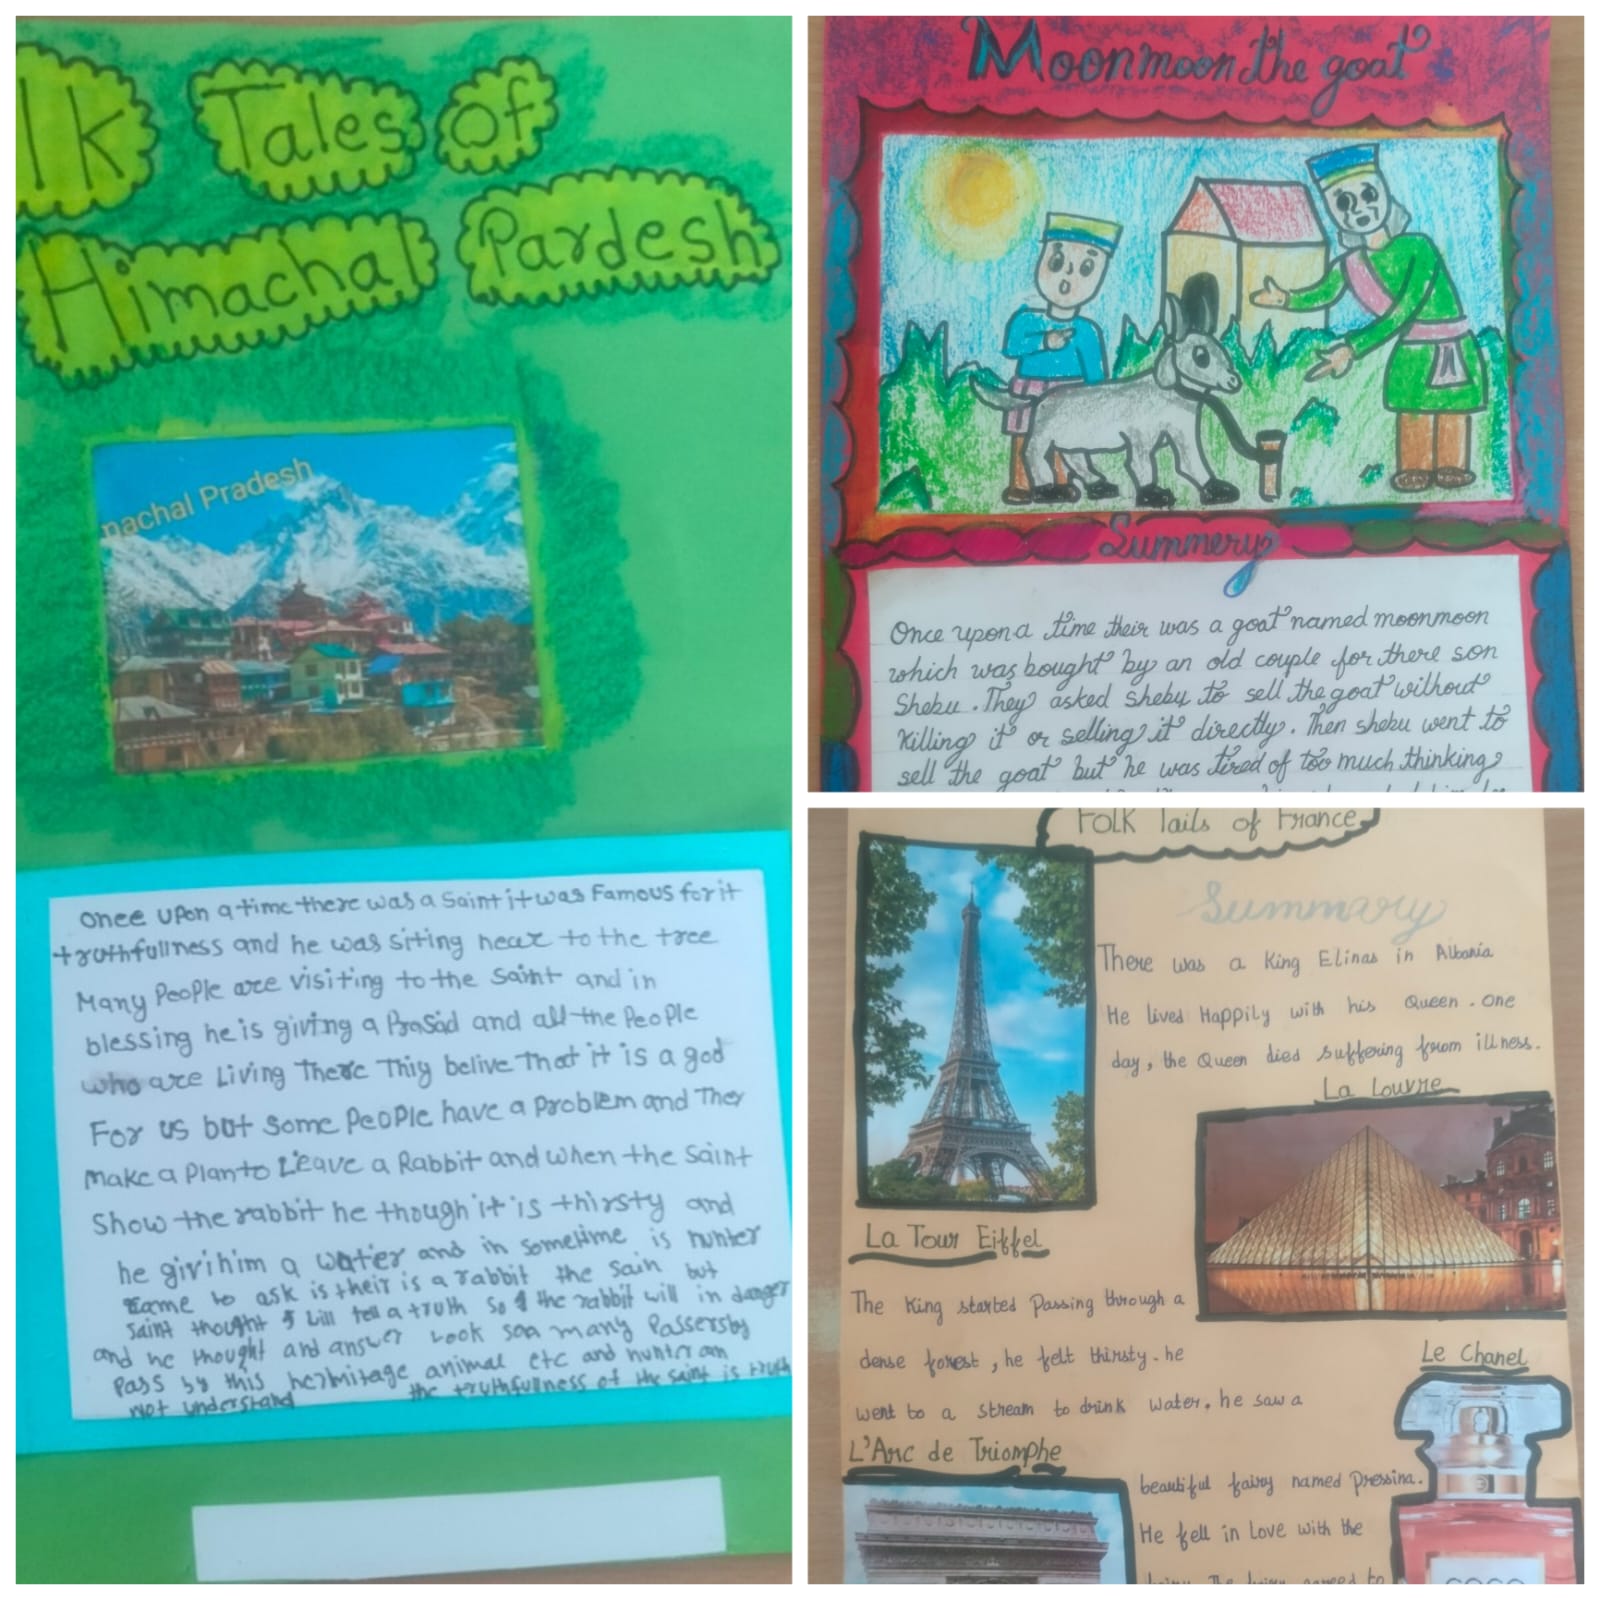 lk Tales of
Himachal Pardesh
nachal Pradesh
Once upon a time there was a Saint it was Famous for it
truthfullness and he was siting near to the tree
Many People are visiting to the Saint and in
blessing he is giving a Prasad and all the People
who are Living There Thiy belive That it is a god
For us but some People have a problem and They
make a Plan to Leave a Rabbit and when the Saint
show the rabbit he though it is thirsty and
he giv him a water and in sometime is hunter
came to ask is their is a rabbit the Sain but
Saint thought I will tell a truth so the rabbit will in danger
and he thought and answer Look son many Passersby
Pass by this hermitage animal etc and huntr am
not understand the truthfullness of the saint is truth
Moonmoon the goat
Summery
Once upon a time their was a goat named moonmoon
which was bought by an old couple for there son
Shebu. They asked shebu to sell the goat without
killing it or selling it directly. Then shebu went to
sell the goat but he was tired of too much thinking
Folk Tails of France
Summary
There was a King Elinas in Albania
He lived Happily with his Queen. One
day, the Queen died suffering from illness.
La Louvre
La Tour Eiffel
The King started Passing through a
dense forest, he felt thirsty. he
went to a stream to drink water. he saw a
Le Chanel
L'Arc de Triomphe
beautiful fairy named Pressina.
He fell in Love with the
fairy. The fairy agreed to
COCO